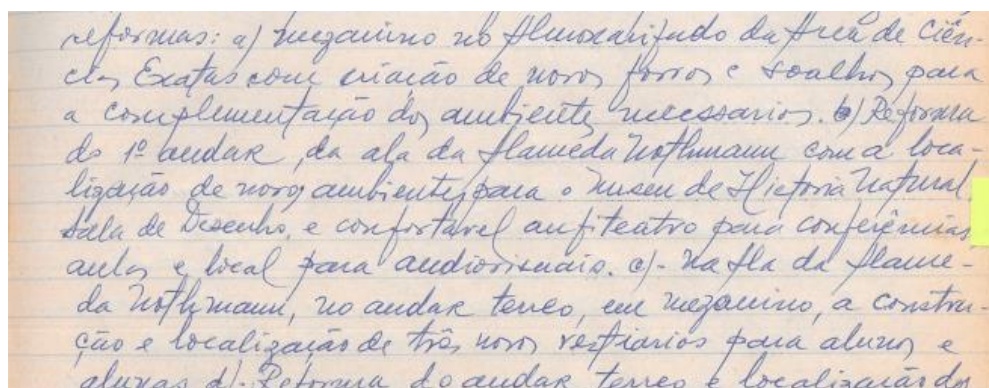 reformas: a) mezanino no Almoxarifado da Área de Ciên-
cias Exatas com criação de novos forros e soalhos para
a complementação dos ambientes necessarios. b) Reforma
do 1º andar, da ala da Alameda Nothmann com a loca-
lização de novos ambientes para o Museu de Historia Natural,
Sala de Desenho, e confortavel anfiteatro para conferências,
aulas e local para audiovisuais. c)- Na Ala da Alame-
da Nothmann, no andar terreo, em mezanino, a constru-
ção e localização de três novos vestiarios para alunos e
alunas d)- Reforma do andar terreo e localização do